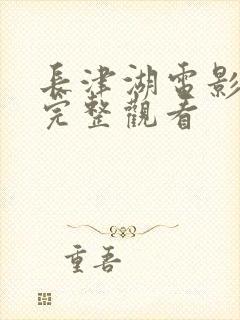 長津湖電影
完整觀看
重吾